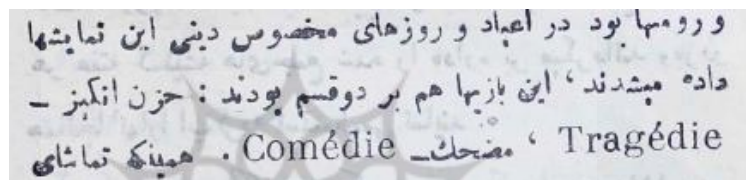 و رومیها بود در اعیاد و روزهای مخصوص دینی این نمایشها
داده میشدند، این بازیها هم بر دو قسم بودند : حزن انگیز ــ
Tragédie ، مضحک ــ Comédie . همینکه تماشای